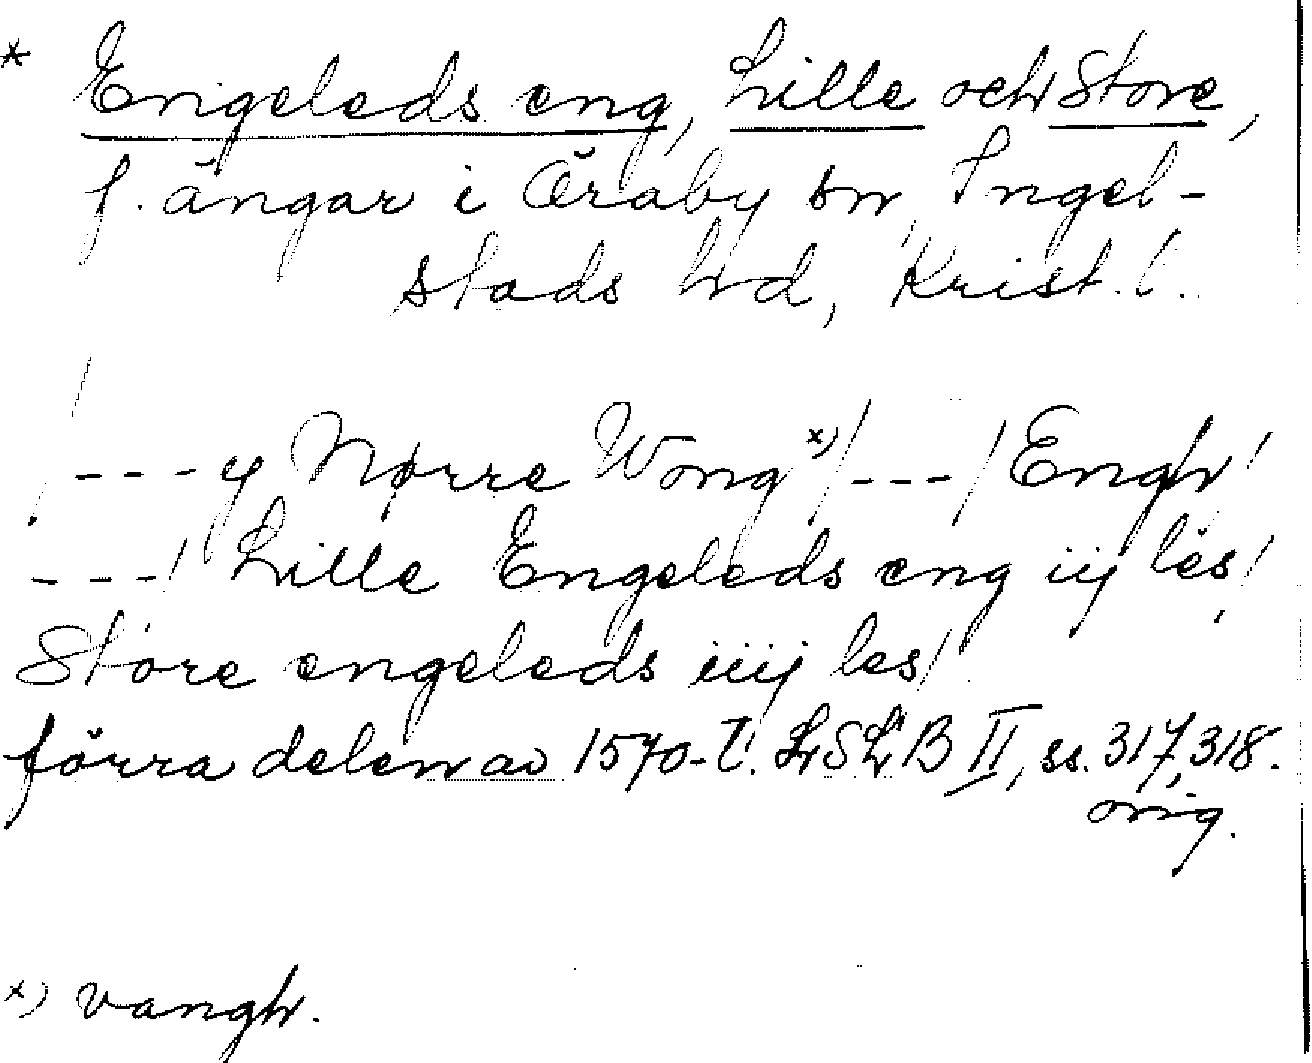 * Engeleds eng, Lille och Store,
f. ängar i Öraby sn, Ingel-
stads hd, Krist. l.
/---y Nørre Wong x)/---/Engh/
---/ Lille Engeleds eng iij les/
Store engeleds iiij les/
förra delen av 1570-t. LSLB II, ss. 317, 318.
orig.
x) vangh.